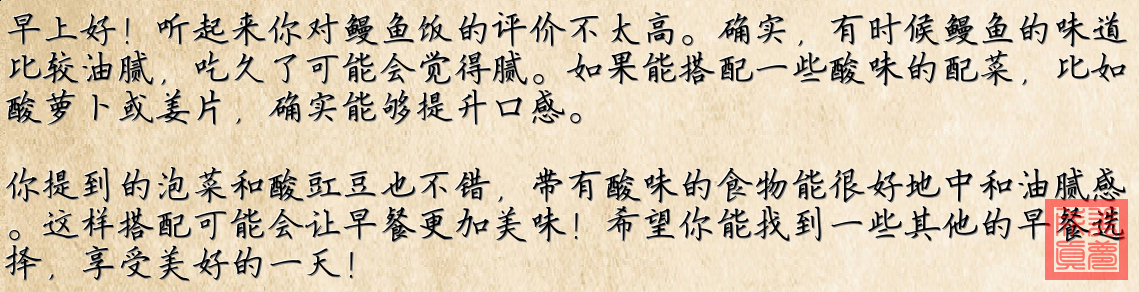 早上好！听起来你对鳗鱼饭的评价不太高。确实，有时候鳗鱼的味道
比较油腻，吃久了可能会觉得腻。如果能搭配一些酸味的配菜，比如
酸萝卜或姜片，确实能够提升口感。
你提到的泡菜和酸豇豆也不错，带有酸味的食物能很好地中和油腻感
。这样搭配可能会让早餐更加美味！希望你能找到一些其他的早餐选
择，享受美好的一天！